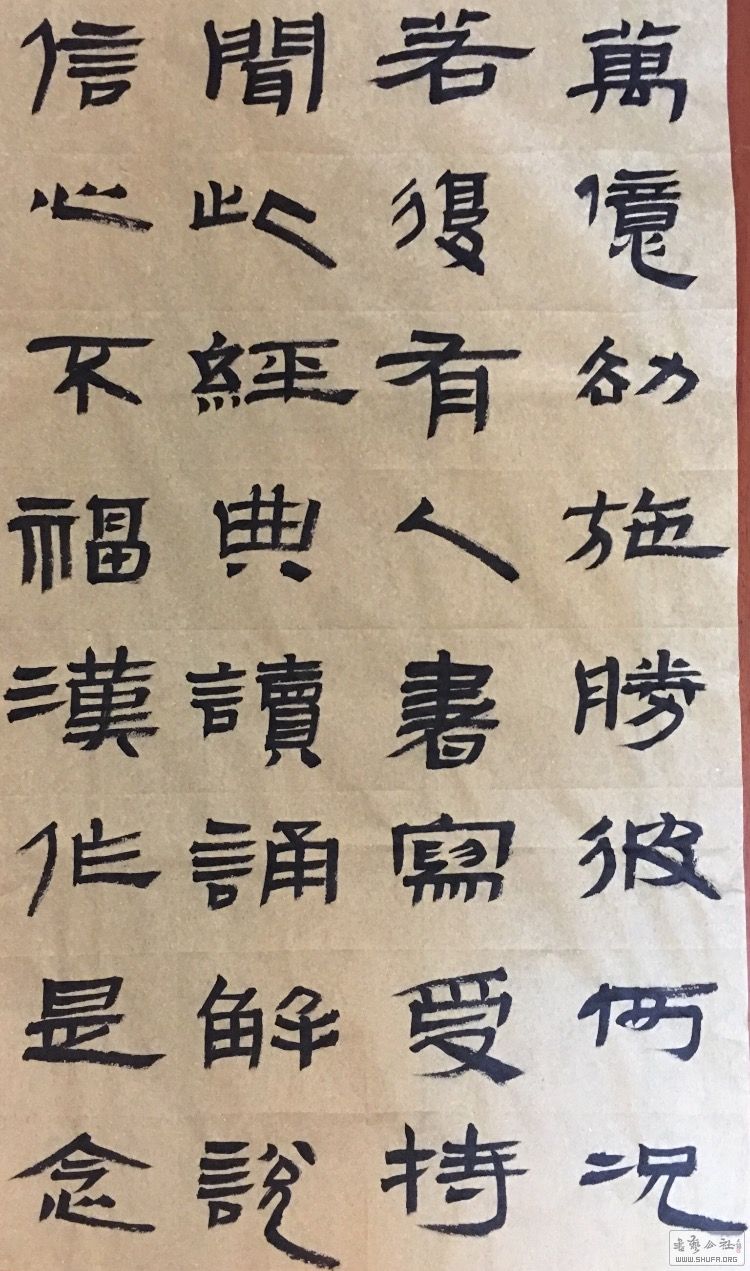 萬億劫施勝彼何況
若復有人書寫受持
聞此經典讀誦解說
信心不福漢作是念
書藝公社
WWW.SHUFA.ORG